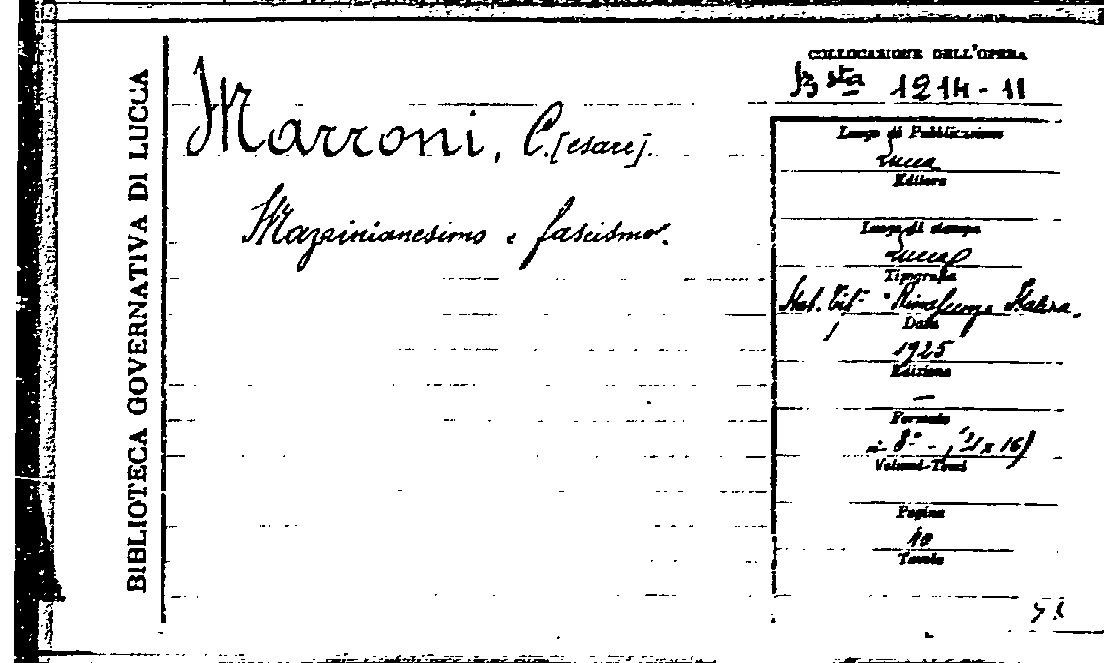 BIBLIOTECA GOVERNATIVA DI LUCCA
Marroni, C.[esare].
Mazzinianesimo e fascismo.
COLLOCAZIONE DELL'OPERA
B.sta 1214-11
Luogo di Pubblicazione
Lucca
Editore
Luogo di stampa
Lucca
Tipografia
Stab. Tip. "Rinascenza Italica"
Data
1925
Edizione
—
Formato
in 8° - (21 x 16)
Volumi-Tomi
Pagine
10
Tavole